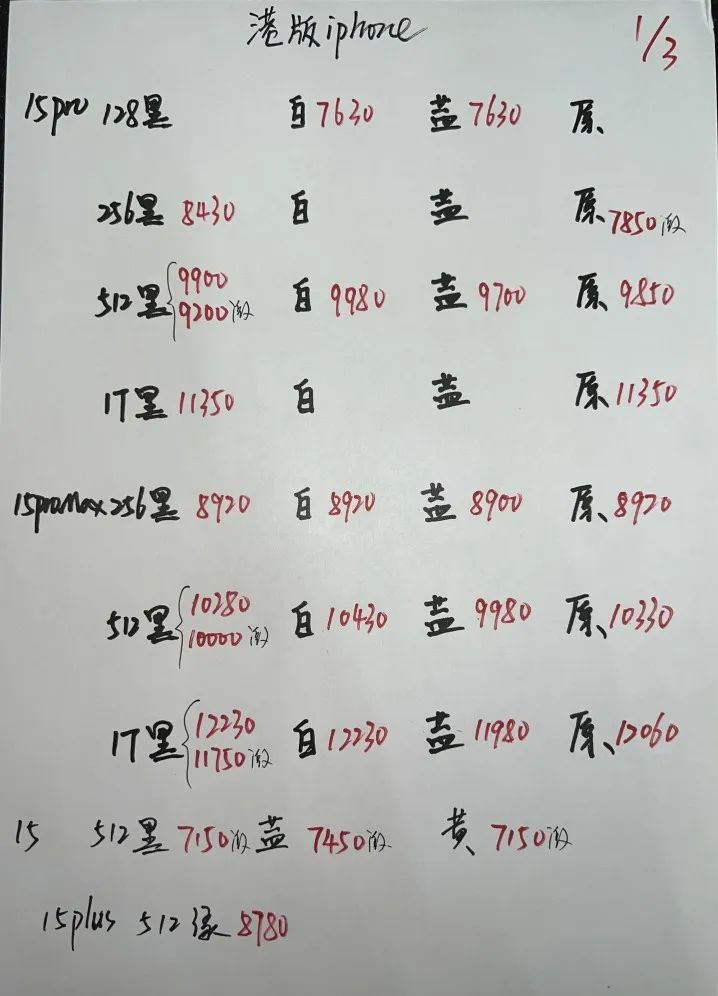 港版iphone 1/3
15pro 128黑 白7630 蓝7630 原
256黑 8430 白 蓝 原 7850激
512黑 9900 9200激 白 9980 蓝 9700 原 9850
1T黑 11350 白 蓝 原 11350
15proMax 256黑 8920 白 8920 蓝 8900 原 8920
512黑 10280 10000激 白 10430 蓝 9980 原 10330
1T黑 12230 11750激 白 12230 蓝 11980 原 12060
15 512黑 7150激 蓝 7450激 黄 7150激
15plus 512绿 8780